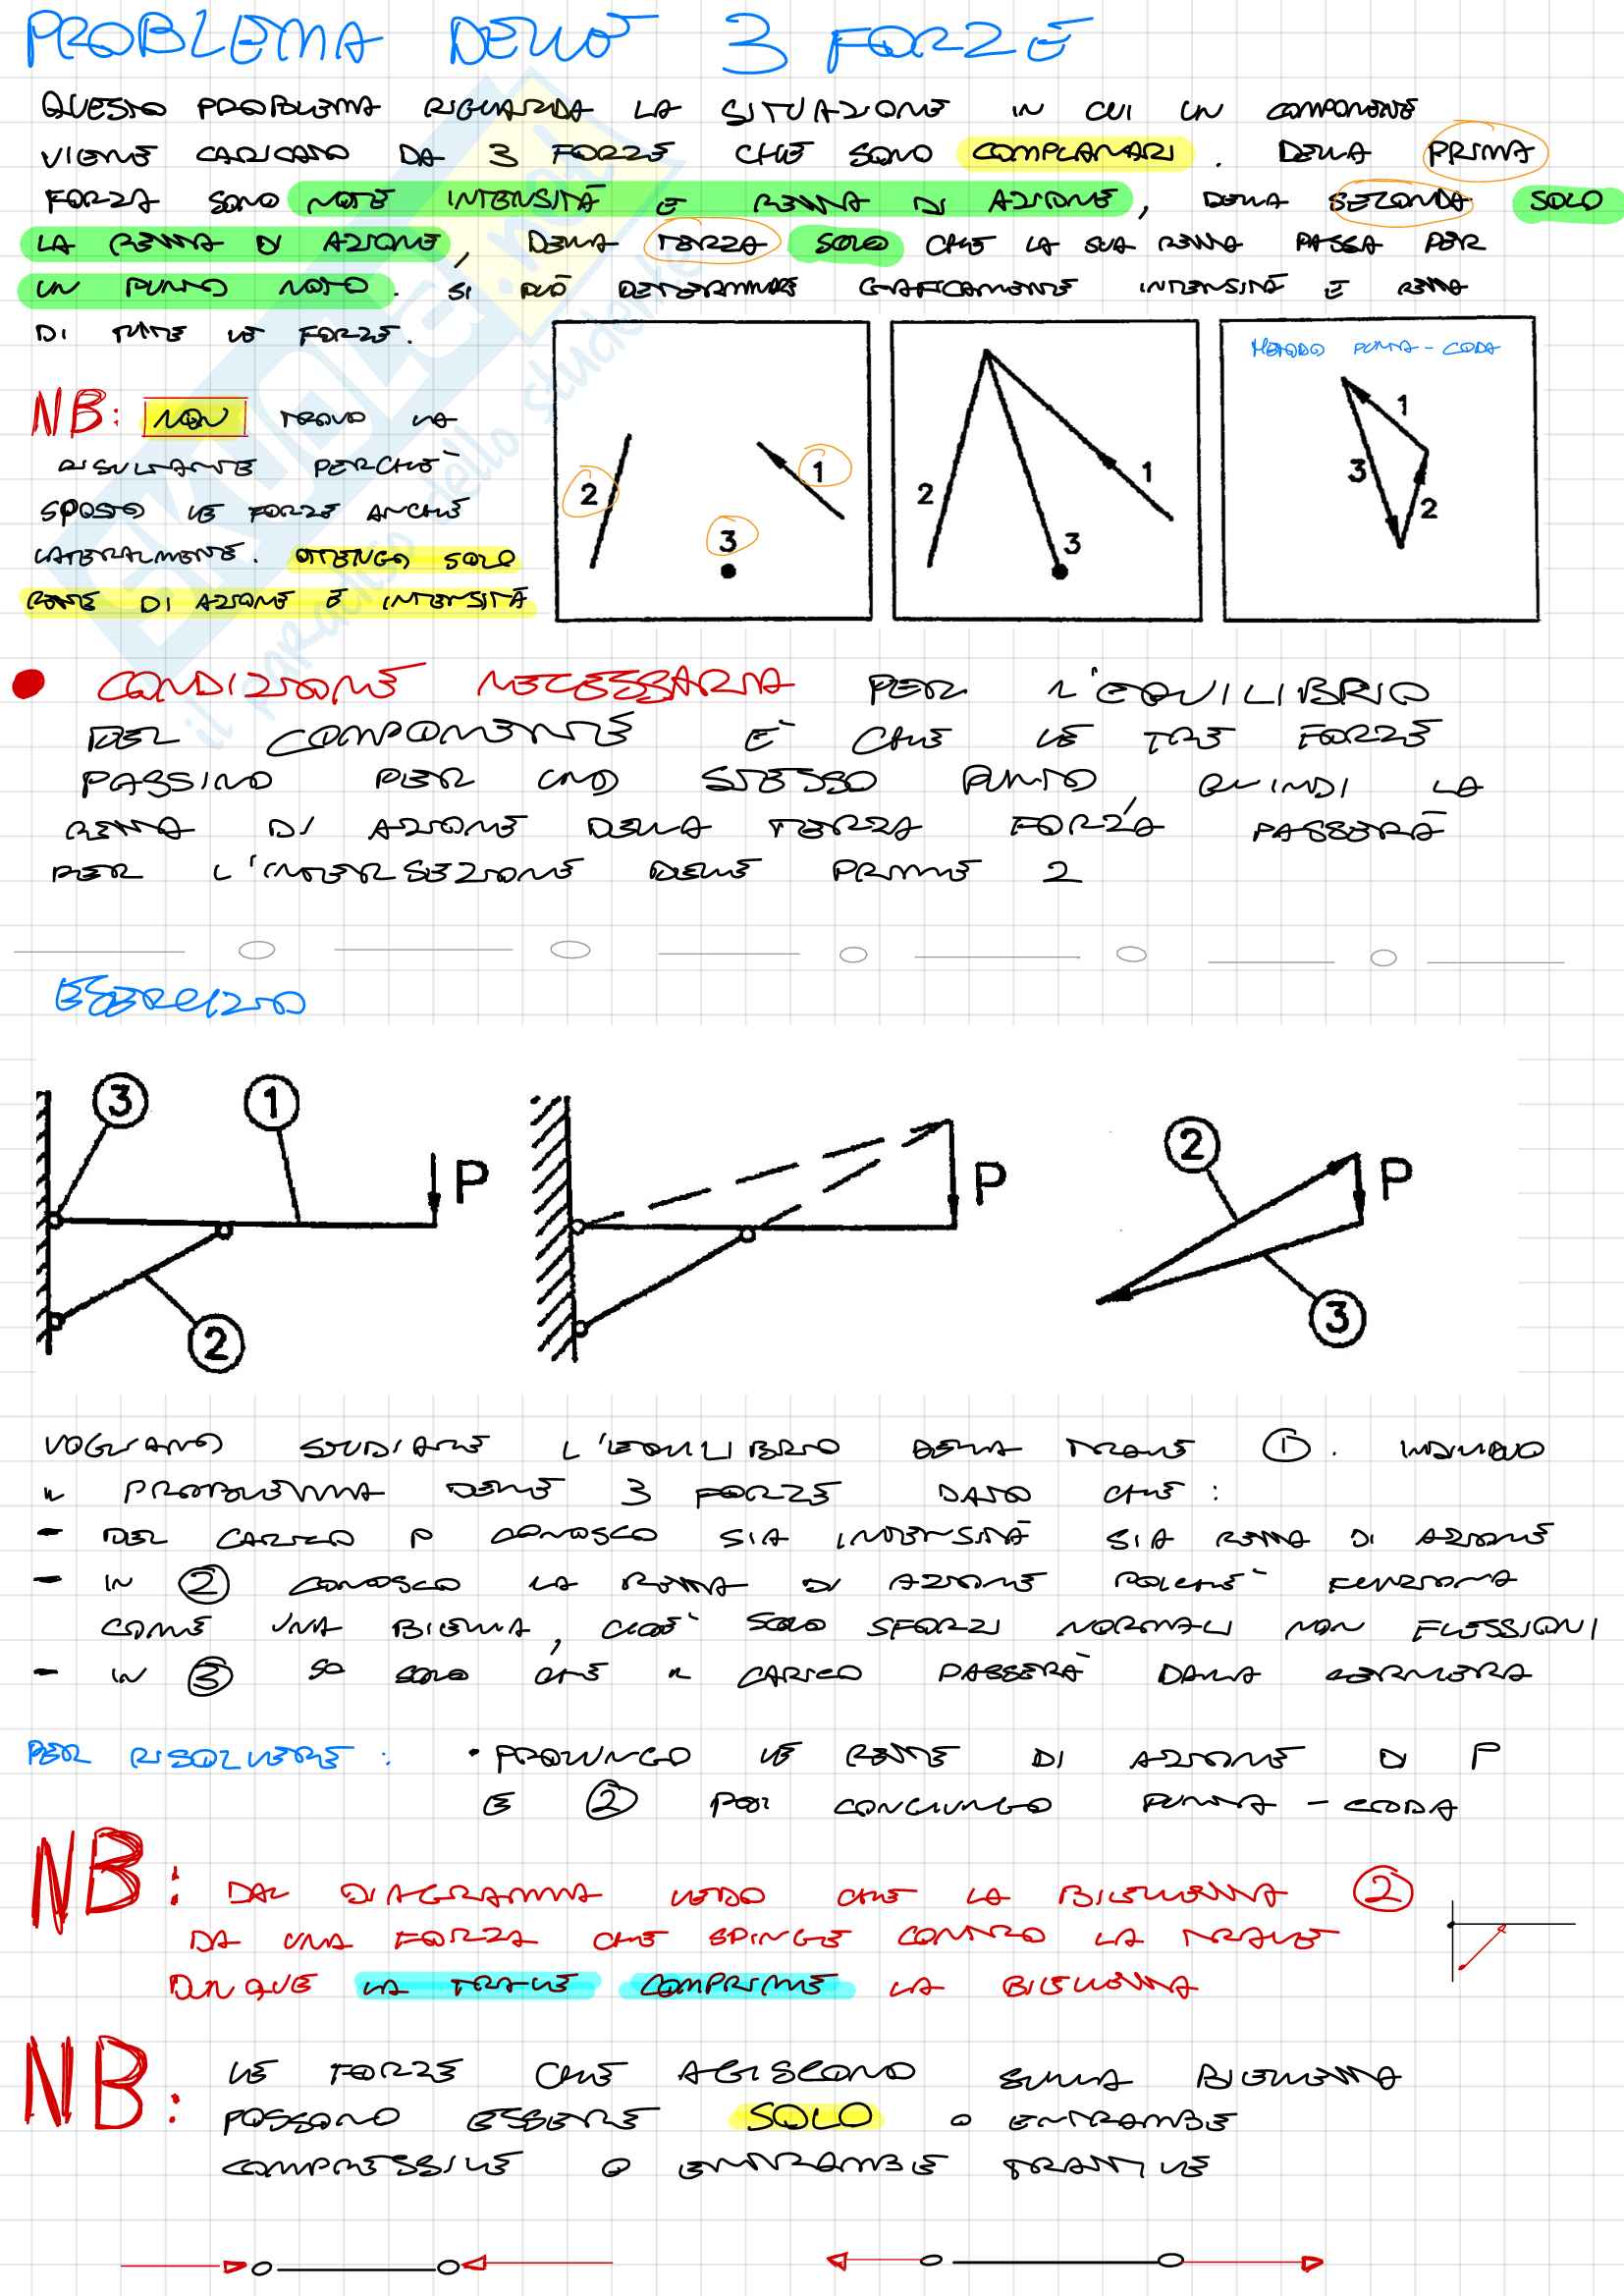 PROBLEMA DELLE 3 FORZE
QUESTO PROBLEMA RIGUARDA LA SITUAZIONE IN CUI UN COMPONENTE
VIENE CARICATO DA 3 FORZE CHE SONO COMPLANARI. DELLA PRIMA
FORZA SONO NOTE INTENSITÀ E RETTA DI AZIONE, DELLA SECONDA SOLO
LA RETTA DI AZIONE, DELLA TERZA SOLO CHE LA SUA RETTA PASSA PER
UN PUNTO NOTO. SI PUÒ DETERMINARE GRAFICAMENTE INTENSITÀ E RETTA
DI TUTTE LE FORZE.
NB: NON TROVO LA
RISULTANTE PERCHÈ
SPOSTO LE FORZE ANCHE
LATERALMENTE. OTTENGO SOLO
RETTE DI AZIONE E INTENSITÀ
2 3 1
2 3 1
METODO PUNTA-CODA
1
3
2
SKUOLA.net
il paradiso dello studente
CONDIZIONE NECESSARIA PER L'EQUILIBRIO
DEL COMPONENTE È CHE LE TRE FORZE
PASSINO PER UNO STESSO PUNTO, QUINDI LA
RETTA DI AZIONE DELLA TERZA FORZA PASSERÀ
PER L'INTERSEZIONE DELLE PRIME 2
ESERCIZIO
3 1 P
2
P
2 P
3
VOGLIAMO STUDIARE L'EQUILIBRIO DELLA TRAVE 1. INDIVIDUO
IL PROBLEMA DELLE 3 FORZE DATO CHE:
- DEL CARICO P CONOSCO SIA INTENSITÀ SIA RETTA DI AZIONE
- IN 2 CONOSCO LA RETTA DI AZIONE POICHÈ FUNZIONA
COME UNA BIELLA, CIOÈ SOLO SFORZI NORMALI NON FLESSIONI
- IN 3 SO SOLO CHE IL CARICO PASSERÀ DALLA CERNIERA
PER RISOLVERE: • PROLUNGO LE RETTE DI AZIONE DI P
E 2 POI CONGIUNGO PUNTA-CODA
NB: DAL DIAGRAMMA VEDO CHE LA BIELLETTA 2
DA UNA FORZA CHE SPINGE CONTRO LA TRAVE
DUNQUE LA TRAVE COMPRIME LA BIELLETTA
NB: LE FORZE CHE AGISCONO SULLA BIELLETTA
POSSONO ESSERE SOLO O ENTRAMBE
COMPRESSIVE O ENTRAMBE TRATTIVE